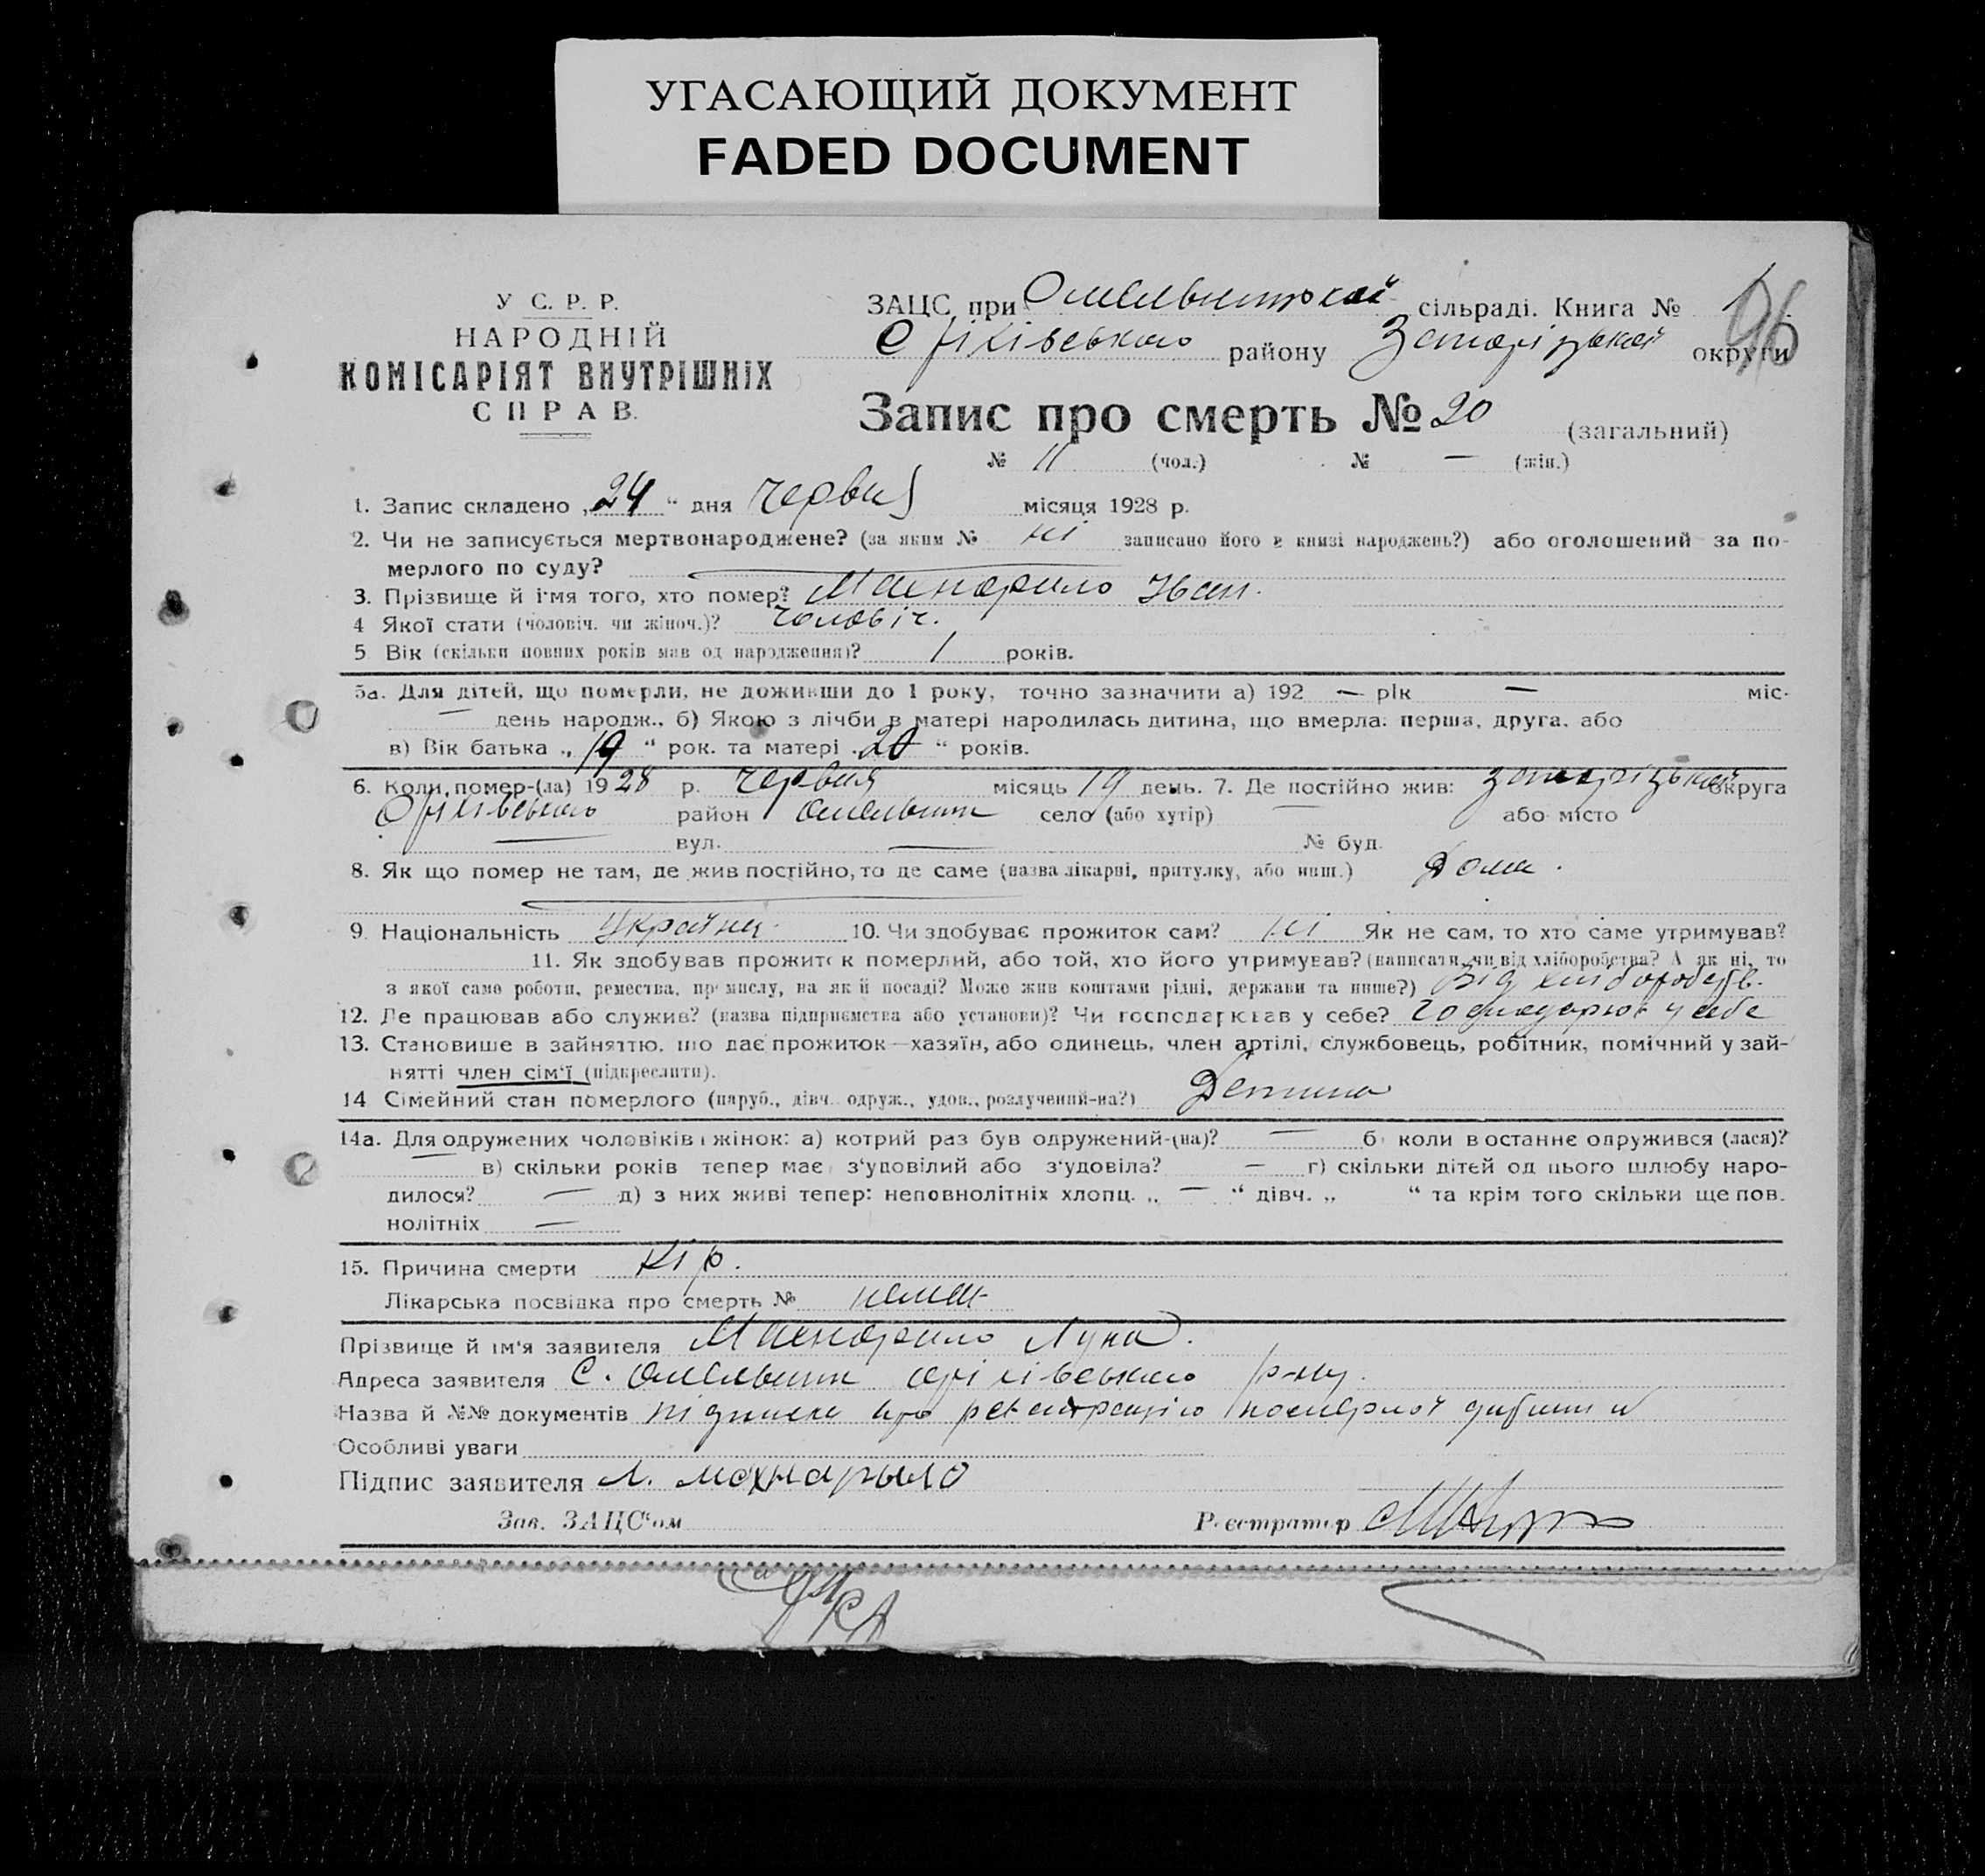 УГАСАЮЩИЙ ДОКУМЕНТ
FADED DOCUMENT
У С. Р. Р.
НАРОДНІЙ
КОМІСАРІЯТ ВНУТРІШНІХ
СПРАВ.
ЗАЦС при Омельницькой сільраді. Книга № 1
96
Оріхівського району Запорізькой округи
Запис про смерть № 20 (загальний)
№ 11 (чол.) № — (жін.)
1. Запис складено „24“ дня червня місяця 1928 р.
2. Чи не записується мертвонароджене? (за яким № ні записано його в книзі народжень?) або оголошений за по-
мерлого по суду?
3. Прізвище й імя того, хто помер? Махнарило Іван.
4 Якої стати (чоловіч. чи жіноч.)? чоловіч.
5 Вік (скільки повних років мав од народження)? 1 років.
5а. Для дітей, що померли, не доживши до 1 року, точно зазначити а) 192 — рік — міс-
— день народж., б) Якою з лічби в матері народилась дитина, що вмерла: перша, друга, або
в) Вік батька „19“ рок. та матері „20“ років.
6. Коли помер-(ла) 1928 р. червня місяць 19 день. 7. Де постійно жив: Запорізькой округа
Оріхівського район Омельник село (або хутір) — або місто
— вул. — № буд.
8. Як що помер не там, де жив постійно, то де саме (назва лікарні, притулку, або инш.) Дома.
9. Національність Україн. 10. Чи здобуває прожиток сам? ні Як не сам, то хто саме утримував?
11. Як здобував прожиток померлий, або той, хто його утримував? (написати, чи від хліборобства? А як ні, то
з якої само роботи, ремества, промислу, на якій посаді? Може жив коштами рідні, держави та инше?) Від хліборобств.
12. Де працював або служив? (назва підприємства або установи)? Чи господарював у себе? господарюв у себе
13. Становище в зайняттю, що дає прожиток—хазяїн, або одинець, член артілі, службовець, робітник, помічний у зай-
нятті член сім'ї (підкреслити).
14 Сімейний стан померлого (паруб., дівч. одруж., удов., розлучений-на?) Детина
14а. Для одружених чоловіків і жінок: а) котрий раз був одружений-(на)? — б) коли в останнє одружився (лася)?
— в) скільки років тепер має з'удовілий або з'удовіла? — г) скільки дітей од цього шлюбу наро-
дилося? — д) з них живі тепер: неповнолітніх хлопц. „ — “ дівч. „ “ та крім того скільки ще пов.
нолітніх —
15. Причина смерти кір.
Лікарська посвідка про смерть № немає
Прізвище й ім'я заявителя Махнарило Лука.
Адреса заявителя С. Омельник оріхівського р-ну.
Назва й №№ документів підписка про регистрацію
Особливі уваги
Підпис заявителя Л. махнарыло
Зав. ЗАЦС'ом Реєстратор